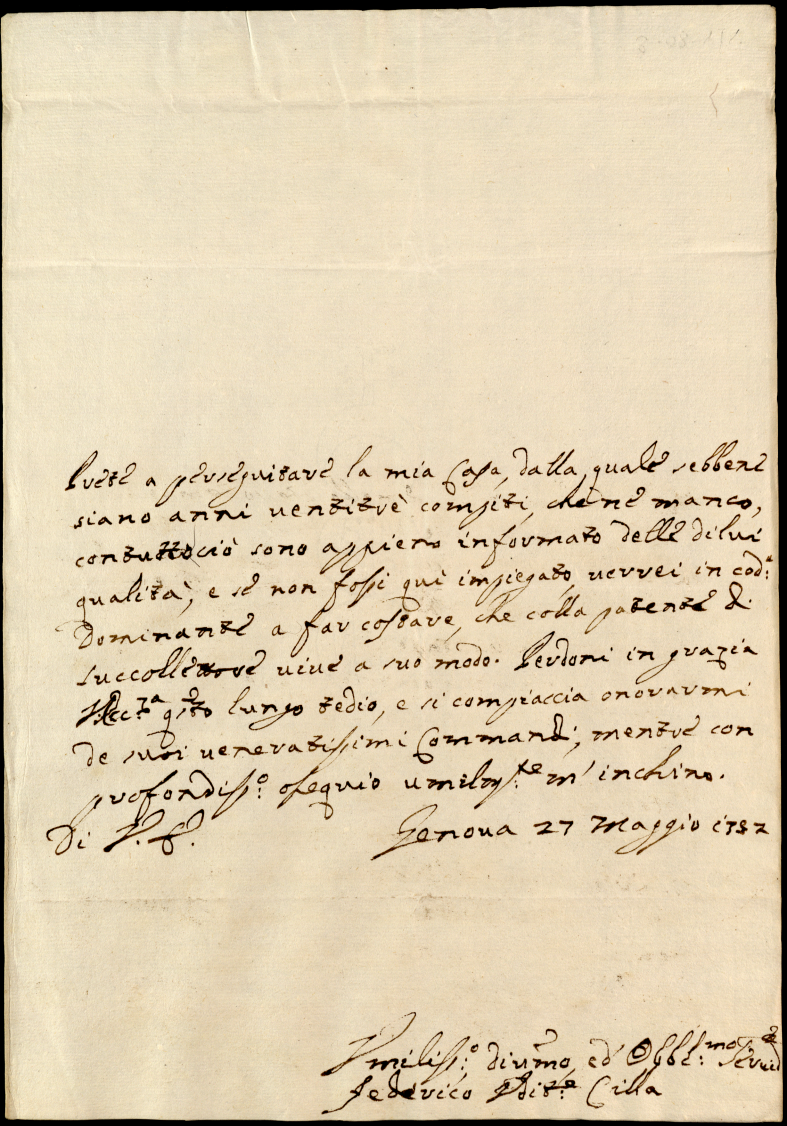 Prete a perseguitare la mia Casa, dalla quale sebbene
siano anni ventitrè compiti, che nè manco,
contuttociò sono appieno informato delle dilui
qualità, e se non fossi quì impiegato, verrei in cod.ᵃ
Dominante a far costare, che colla patente di
succollettore vive a suo modo. Perdoni in grazia
V. Ecc.ᶻᵃ qsto lungo tedio, e si compiaccia onorarmi
de suoi veneratissimi Commandi, mentre con
profondiss.º ossequio umilm.ᵗᵉ m' inchino.
Di V. E.
Genova 27 Maggio 1752
Umiliss.º divmo, ed Obbl.ᵐᵒ
Federico Cilla